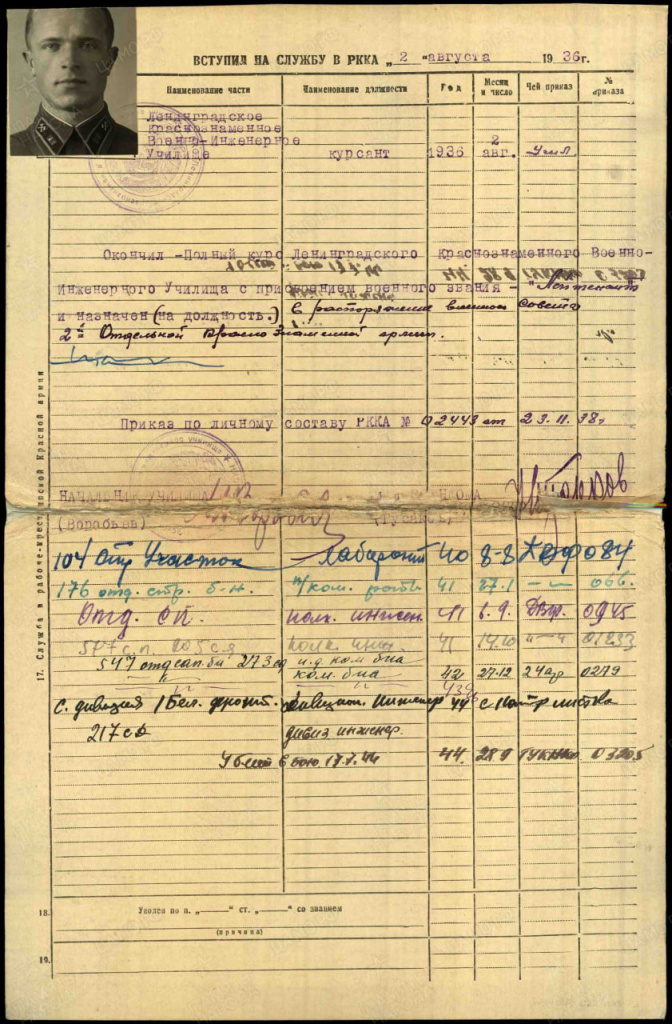 ВСТУПИЛ НА СЛУЖБУ В РККА „ 2 “ августа 1936г.
Наименование части Наименование должности Год Месяц и число Чей приказ № приказа
Ленинградское
Краснознаменное
Военно-Инженерное 2
Училище курсант 1936 авг. Учил
Окончил - Полный курс Ленинградского Краснознаменного Военно-
Инженерного Училища с присвоением военного звания - "Лейтенант
и назначен (на должность.) в распоряжение военного Совета
2й Отдельной Краснознаменной армии.
Приказ по личному составу РККА № 02443 от 23.11.38г
НАЧАЛЬНИК УЧИЛИЩА
(Воробьев)
104 Стр Участок Лаборант 40 8-8 084
176 отд. стр. б-н. п/ком. роты 41 27.1 — 〃 — 066.
Отд. сп. полк. инжен. 41 6.9. 0945
577 с.п. 205 с.д полк. инж. 41 14.10 — 〃 — 01233
547 отд сап. бн 273 сд и.д. ком. б-на
〃 ком. б-на 42 27.12 0279
с. дивизия 1 Бел. фронт. дивизион. инженер 44
217 сд дивиз. инженер.
Убит в бою 17.7.44 44. 28.9 ГУКНКО
17. Служба в рабоче-крестьянской Красной армии
18. Уволен по п. „——“ ст. „——“ со званием
(причина)
19.